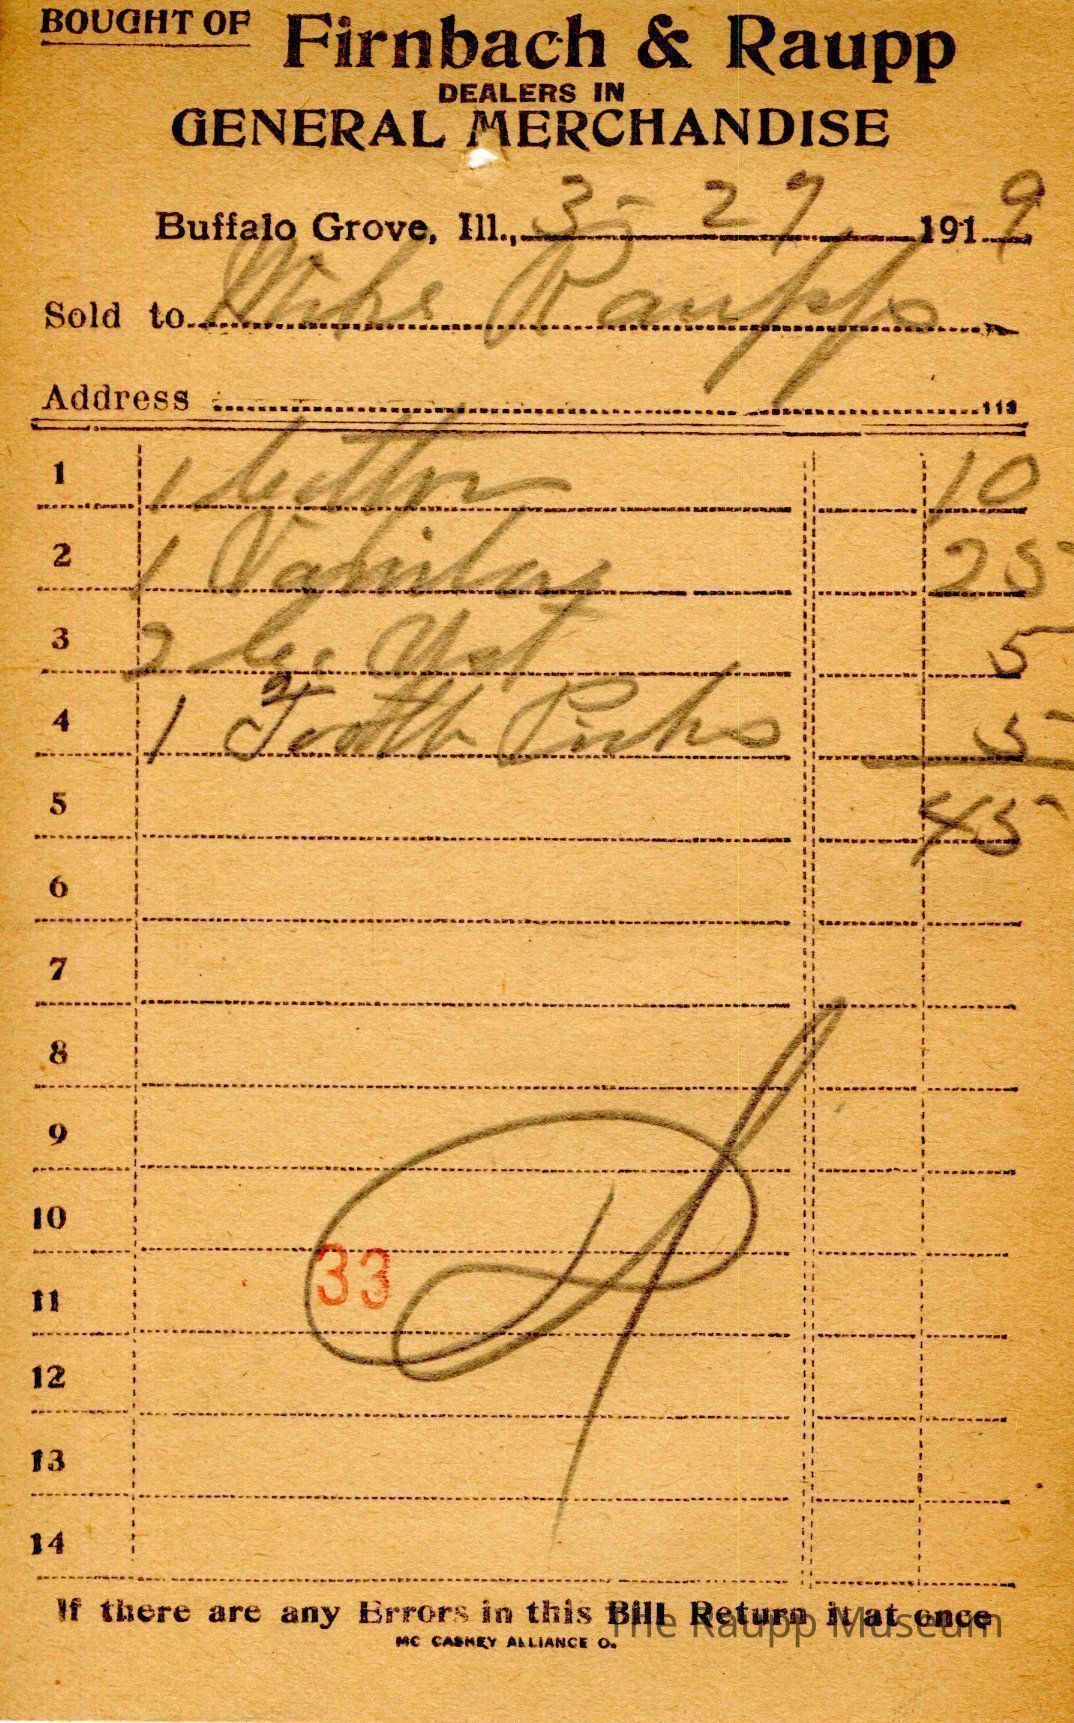 BOUGHT OF Firnbach & Raupp
DEALERS IN
GENERAL MERCHANDISE
Buffalo Grove, Ill., 3-27 1919
Sold to Mike Raupp
Address 113
1 1 10
2 1 Vanilla 25
3 2 Yst 5
4 1 Tooth Picks 5
5 45
6
7
8
9
10
33
11
12
13
14
If there are any Errors in this Bill Return it at once
The Raupp Museum
MC CASKEY ALLIANCE O.